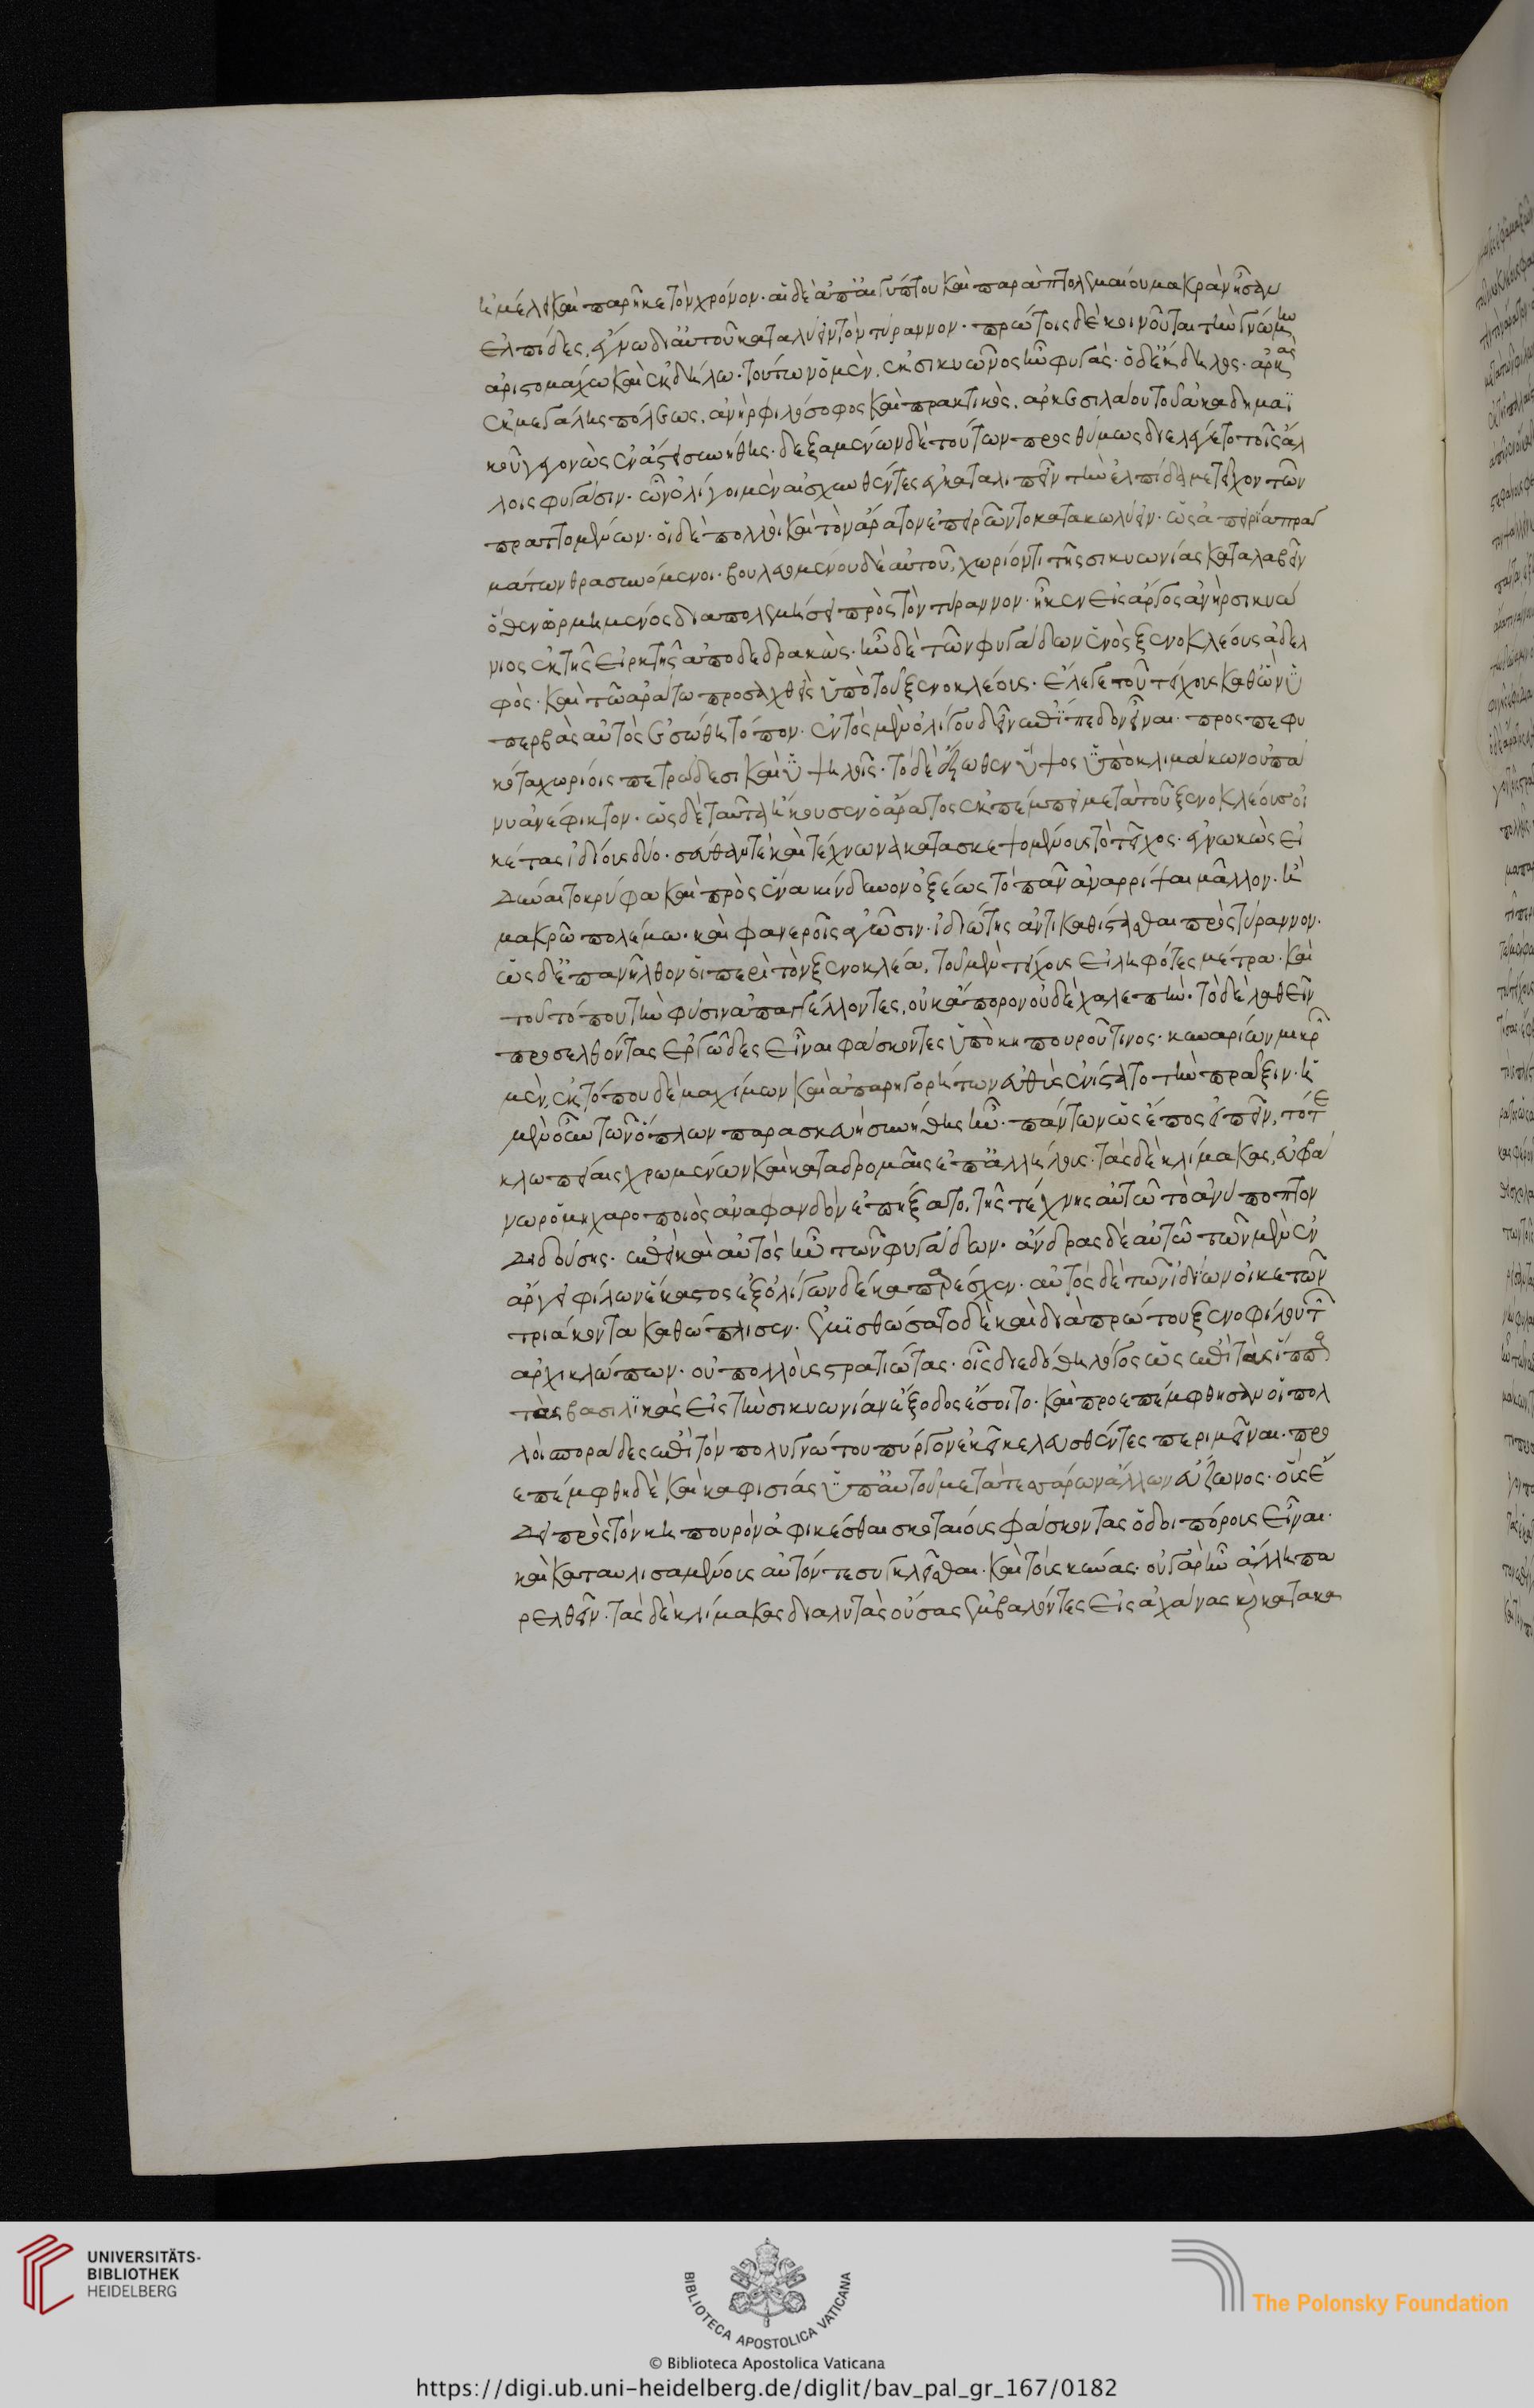 ἠμέλει καὶ παρῆκε τὸν χρόνον· αἱ δὲ ἀπ' αἰγύπτου καὶ παρὰ πτολεμαίου μακρὰν ἦσαν
ἐλπίδες, ἔγνω δι' αὑτοῦ καταλύειν τὸν τύραννον· πρώτοις δὲ κοινοῦται τὴν γνώμην
ἀριστομάχω καὶ ἐκδήλω· τούτων ὁ μὲν, ἐκ σικυῶνος ἦν φυγάς· ὁ δὲ ἔκδηλος· ἀρκὰς
ἐκ μεγάλης πόλεως, ἀνὴρ φιλόσοφος καὶ πρακτικὸς, ἀρκεσιλάου τοῦ ἀκαδημαϊ
κοῦ γεγονὼς ἐν ἄστει συνήθης· δεξαμένων δὲ τούτων προθύμως διελέγετο τοῖς ἄλ
λοις φυγάσιν· ὧν ὀλίγοι μὲν αἰσχυνθέντες ἐγκαταλιπεῖν τὴν ἐλπίδα μετεῖχον τῶν
πραττομένων· οἱ δὲ πολλοὶ καὶ τὸν ἄρατον ἐπειρῶντο κατακωλύειν· ὡς ἀπειρία πραγ
μάτων θρασυνόμενον· βουλευομένου δὲ αὐτοῦ, χωρίον τι τῆς σικυωνίας καταλαβεῖν
ὅθεν ὡρμημένος διαπολεμήσει πρὸς τὸν τύραννον· ἧκεν εἰς ἄργος ἀνὴρ σικυώ
νιος ἐκ τῆς εἱρκτῆς ἀποδεδρακώς· ἦν δὲ τῶν φυγάδων ἑνὸς ξενοκλέους ἀδελ
φὸς· καὶ τῶ ἀράτω προσαχθεὶς ὑπὸ τοῦ ξενοκλέους· ἔλεγε τοῦ τείχους καθ' ὃν ὑ
περβὰς αὐτὸς ἐσώθη τόπον· ἐντὸς μὲν ὀλίγου δεῖν ἐπίπεδον εἶναι· προσπεφυ
κότα χωρίοις πετρώδεσι καὶ ὑψηλοῖς· τὸ δὲ ἔξωθεν ὕψος ὑπὸ κλιμάκων οὐ πά
νυ ἀνέφικτον· ὡς δὲ ταῦτα ἤκουσεν ὁ ἄρατος ἐκπέμπει μετὰ τοῦ ξενοκλέους οἰ
κέτας ἰδίους δύο· σεύθαν τὲ καὶ τέχνωνα κατασκεψομένους τὸ τεῖχος· ἐγνωκὼς εἰ
δύναιτο κρύφα καὶ πρὸς ἕνα κίνδυνον ὀξέως τὸ πᾶν ἀναρρίψαι μᾶλλον· ἢ
μακρῶ πολέμω· καὶ φανεροῖς ἀγῶσιν· ἰδιώτης ἀντικαθίστασθαι πρὸς τύραννον·
ὡς δὲ ἐπανῆλθον οἱ περὶ τὸν ξενοκλέα, τοῦ μὲν τείχους εἰληφότες μέτρα· καὶ
τοῦ τόπου τὴν φύσιν ἀπαγγέλλοντες, οὐκ ἄπορον οὐδὲ χαλεπὴν· τὸ δὲ λαθεῖν
προσελθόντας ἐργῶδες εἶναι φάσκοντες ὑπὸ κηπουροῦ τινος· κυναρίων μικρῶν
μὲν, ἐκτόπου δὲ μαχίμων καὶ ἀπαρηγορήτων εὐθὺς ἐνίστατο τὴν πρᾶξιν· ἡ
μὲν οὖν τῶν ὅπλων παρασκευὴ συνήθης ἦν· πάντων ὡς ἔπος εἰπεῖν, τότε
κλωπείαις χρωμένων καὶ καταδρομαῖς ἐπ' ἀλλήλους· τὰς δὲ κλίμακας, εὐφρά
νωρ ὁ μηχαροποιὸς ἀναφανδὸν ἐπήξατο, τῆς τέχνης αὐτῶ τὸ ἀνύποπτον
διδούσης· ἐπεὶ καὶ αὐτὸς ἦν τῶν φυγάδων· ἄνδρας δὲ αὐτῶ τῶν μὲν ἐν
ἄργει φίλων ἕκαστος ἐξ ὀλίγων δέκα παρέσχεν· αὐτὸς δὲ τῶν ἰδίων οἰκετῶν
τριάκοντα καθώπλισεν· ἐμισθώσατο δὲ καὶ διὰ πρώτου ξενοφίλου τῶν
ἀρχικλώπων· οὐ πολλοὺς στρατιώτας· οἷς διεδόθη λόγος ὡς ἐπὶ τὰς ἵππους
τὰς βασιλικὰς εἰς τὴν σικυωνίαν ἔξοδος ἔσοιτο· καὶ προεπέμφθησαν οἱ πολ
λοὶ σποράδες ἐπὶ τὸν πολυγνώτου πύργον ἐκεῖ κελευσθέντες περιμεῖναι· προ
επέμφθη δὲ καὶ καφισίας ὑπ' αὐτοῦ μετὰ τεσσάρων ἄλλων εὔζωνος· οὓς ἔ
δει πρὸς τὸν κηπουρὸν ἀφικέσθαι σκοταίους φάσκοντας ὁδοιπόρους εἶναι·
καὶ καταυλισαμένους αὐτόν τε συγκλεῖσθαι· καὶ τοὺς κύνας· οὐ γὰρ ἦν ἄλλη πα
ρελθεῖν· τὰς δὲ κλίμακας διαλυτὰς οὔσας ἐμβαλόντες εἰς ἀχάνας καὶ κατακα
UNIVERSITÄTS-
BIBLIOTHEK
HEIDELBERG
BIBLIOTECA APOSTOLICA VATICANA
The Polonsky Foundation
© Biblioteca Apostolica Vaticana
https://digi.ub.uni-heidelberg.de/diglit/bav_pal_gr_167/0182